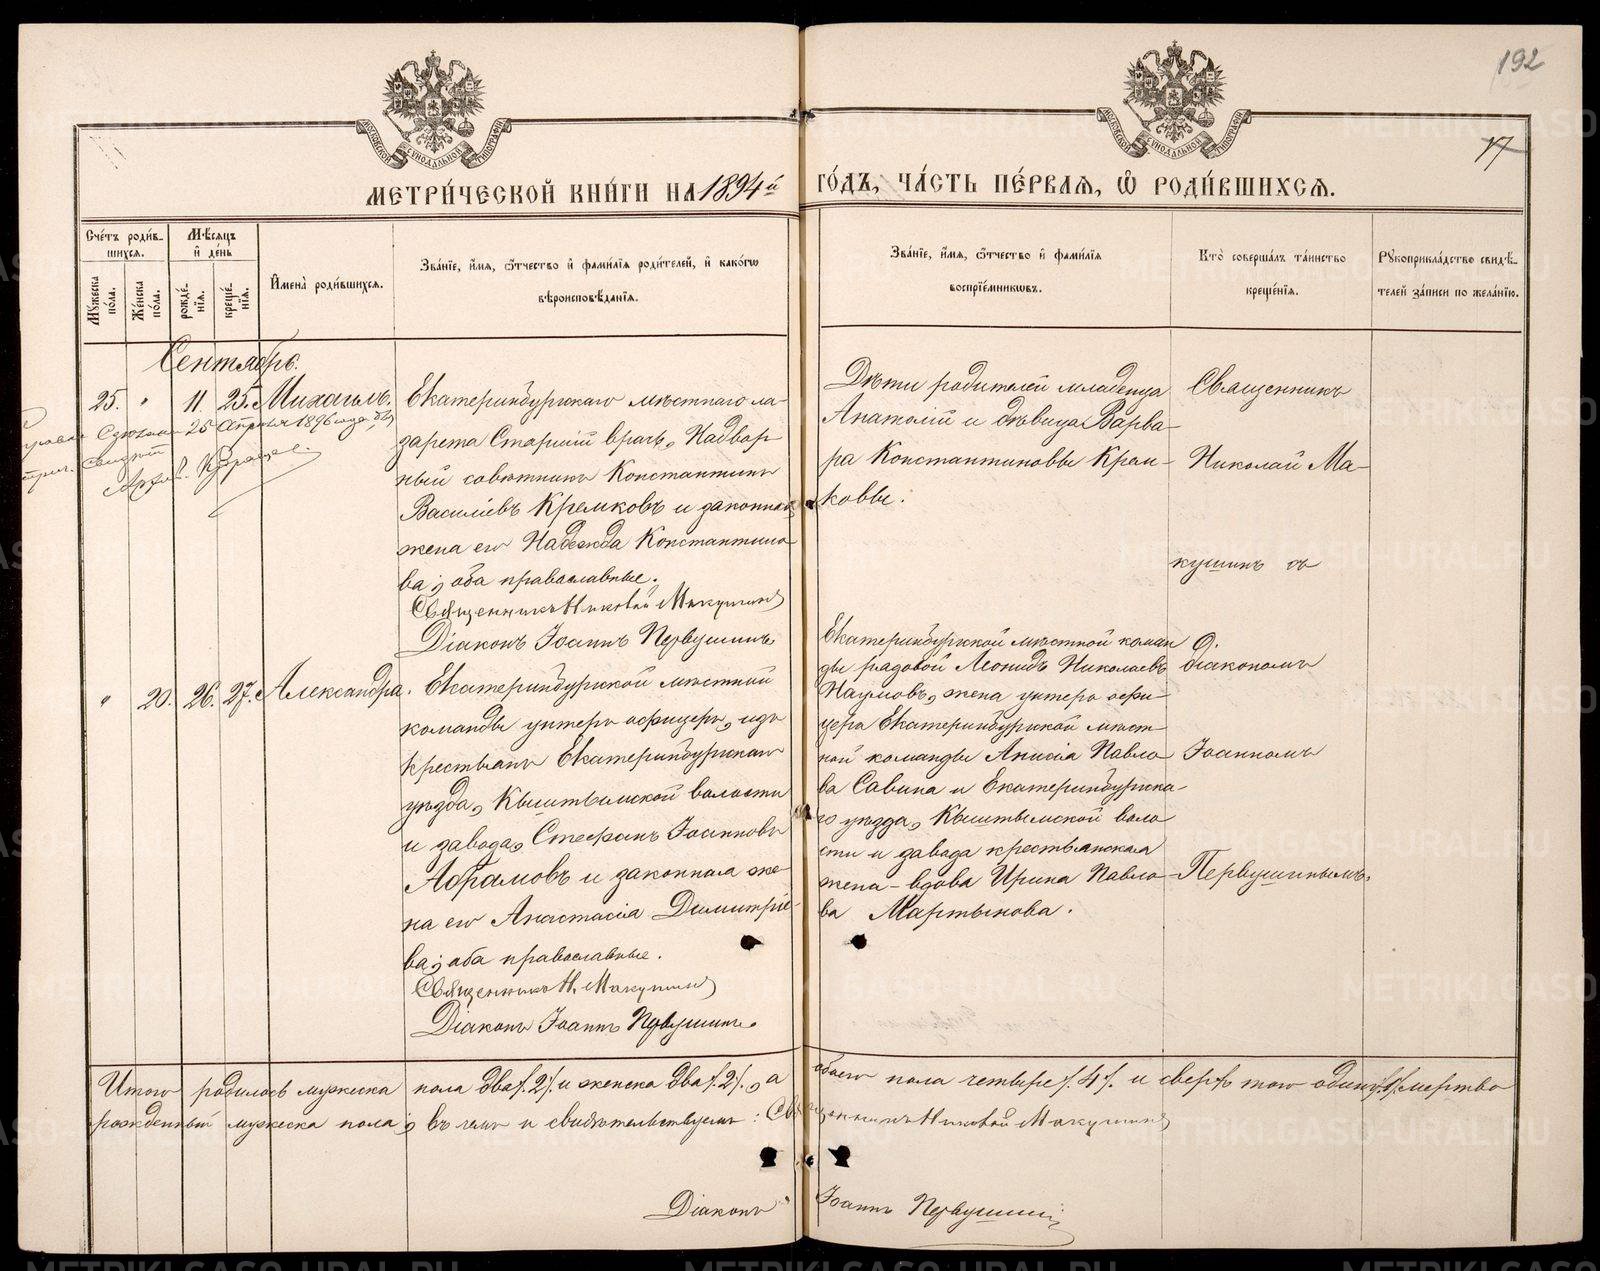 192
17
МОСКОВСКОЙ СѴНОДАЛЬНОЙ ТИПОГРАФІИ
МОСКОВСКОЙ СѴНОДАЛЬНОЙ ТИПОГРАФІИ
МЕТРИ́ЧЕСКОЙ КНИ́ГИ НА 1894й ГО́ДЪ, ЧА́СТЬ ПЕ́РВАЯ, Ѡ РОДИ́ВШИХСЯ.
Сче́тъ роди́в-
шихся.
Мꙋ́жеска по́ла.
Же́нска по́ла.
Мѣ́сяцъ
и҆ де́нь
рожде́нїя.
креще́нїя.
И҆мена̀ роди́вшихся.
Зва́нїе, и҆́мя, ѻ҆́тчество и҆ фами́лїя роди́телей, и҆ како́гѡ
вѣроисповѣ́данїя.
Зва́нїе, и҆́мя, ѻ҆́тчество и҆ фами́лїя
воспрїе́мникѡвъ.
Кто̀ соверша́лъ та́инство
креще́нїя.
Рꙋкоприкла́дство свидѣ́-
телей за́писи по жела́нїю.
Сентябрь.
25. " 11. 25. Михаилъ.
25 Апрѣля 1896 года
Екатеринбургскаго мѣстнаго ла-
зарета Старшій врачъ, Надвор-
ный совѣтникъ Константинъ
Василіевъ Кремковъ и законная
жена его Надежда Константино-
ва; оба православные.
Священникъ Николай Макушинъ
Діаконъ Іоаннъ Первушинъ
Дѣти родителей младенца
Анатолій и дѣвица Варва-
ра Константиновы Крем-
ковы.
Священникъ
Николай Ма-
кушинъ съ
о. діакономъ
Іоанномъ
Первушинымъ.
" 20. 26. 27. Александра.
Екатеринбургской мѣстной
команды унтеръ офицеръ, изъ
крестьянъ Екатеринбургскаго
уѣзда, Кыштымской волости
и завода, Стефанъ Іоанновъ
Абрамовъ и законная же-
на его Анастасія Димитріе-
ва; оба православные.
Священникъ Н. Макушинъ
Діаконъ Іоаннъ Первушинъ.
Екатеринбургской мѣстной коман
ды рядовой Леонидъ Николаевъ
Наумовъ, жена унтеръ офи-
цера Екатеринбургской мѣст-
ной команды Анисія Павло
ва Савина и Екатеринбургска-
го уѣзда, Кыштымской воло
сти и завода крестьянская
жена-вдова Ирина Павло-
ва Мартынова.
Итого родилось мужеска пола два /2/ и женска два /2/, а обоего пола четыре /4/ и сверхъ того одинъ /1/ мертво
рожденный мужеска пола; въ чемъ и свидѣтельствуемъ: Священникъ Николай Макушинъ
Діаконъ Іоаннъ Первушинъ
METRIKI.GASO-URAL.RU